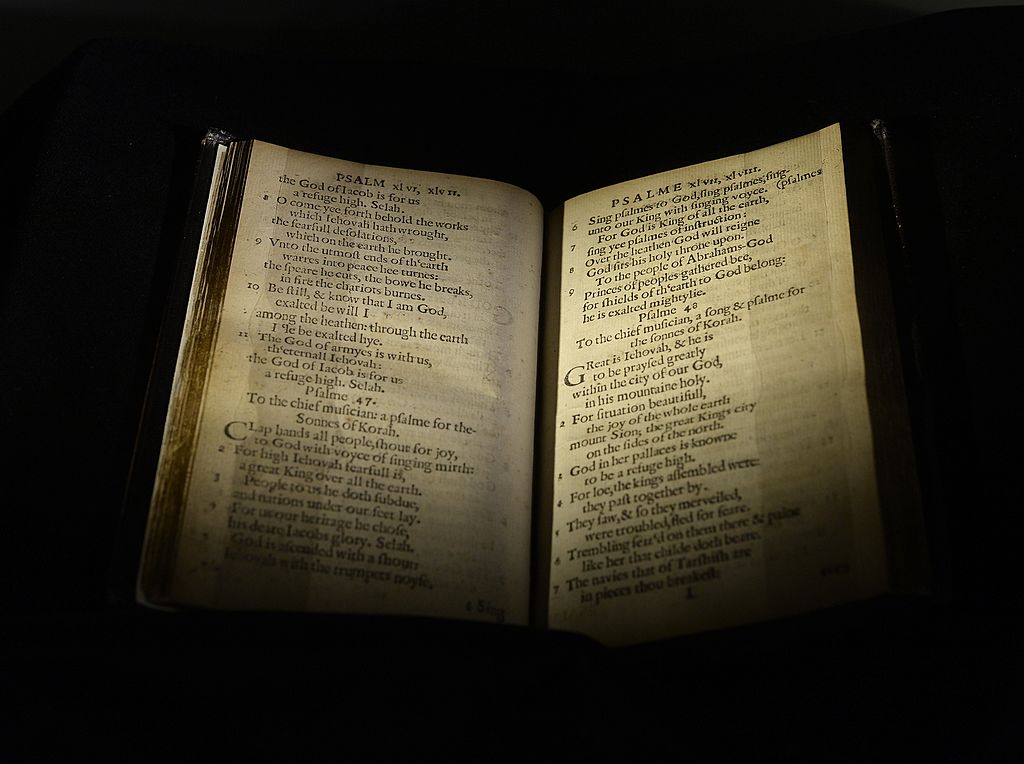 PSALM xlvi, xlvii.
the God of Iacob is for us
a refuge high. Selah.
8 O come yee forth behold the works
which Iehovah hath wrought,
the fearfull desolations,
which on the earth he brought.
9 Vnto the utmost ends of th'earth
warres into peace hee turnes:
the speare he cuts, the bowe he breaks,
in fire the chariots burnes.
10 Be ſtill, & know that I am God,
exalted be will I
among the heathen: through the earth
I'le be exalted hye.
11 The God of armyes is with us,
th'eternall Iehovah:
the God of Iacob is for us
a refuge high. Selah.
Psalme 47.
To the chief muſician: a pſalme for the
Sonnes of Korah.
CLap hands all people, ſhout for joy,
to God with voyce of ſinging mirth:
2 For high Iehovah fearfull is,
a great King over all the earth.
3 People to us he doth ſubdue,
and nations under our feet lay.
4 For us our heritage he choſe,
his deare Iacobs glory. Selah.
5 God is aſcended with a ſhout:
Iehovah with the trumpets noyſe.
6 Sing
PSALME xlvii, xlviii.
6 Sing pſalmes to God, ſing pſalmes, ſing
unto our King with ſinging voyce. (pſalmes
7 For God is King of all the earth,
ſing yee pſalmes of inſtruction:
8 Over the heathen God will reigne
God ſits his holy throne upon.
9 To the people of Abrahams God
Princes of peoples gathered bee,
for ſhields of th'earth to God belong:
he is exalted mightylie.
Pſalme 48
To the chief muſician, a ſong & pſalme for
the ſonnes of Korah.
GReat is Iehovah, & he is
to be prayſed greatly
within the city of our God,
in his mountaine holy.
2 For ſituation beautifull,
the joy of the whole earth
mount Sion; the great Kings city
on the ſides of the north.
3 God in her pallaces is knowne
to be a refuge high.
4 For loe, the kings aſſembled were:
they paſt together by.
5 They ſaw, & ſo they merveiled,
were troubled, fled for feare.
6 Trembling ſeiz'd on them there & paine
like her that childe doth beare.
7 The navies that of Tarſhiſh are
in pieces thou breakeſt: